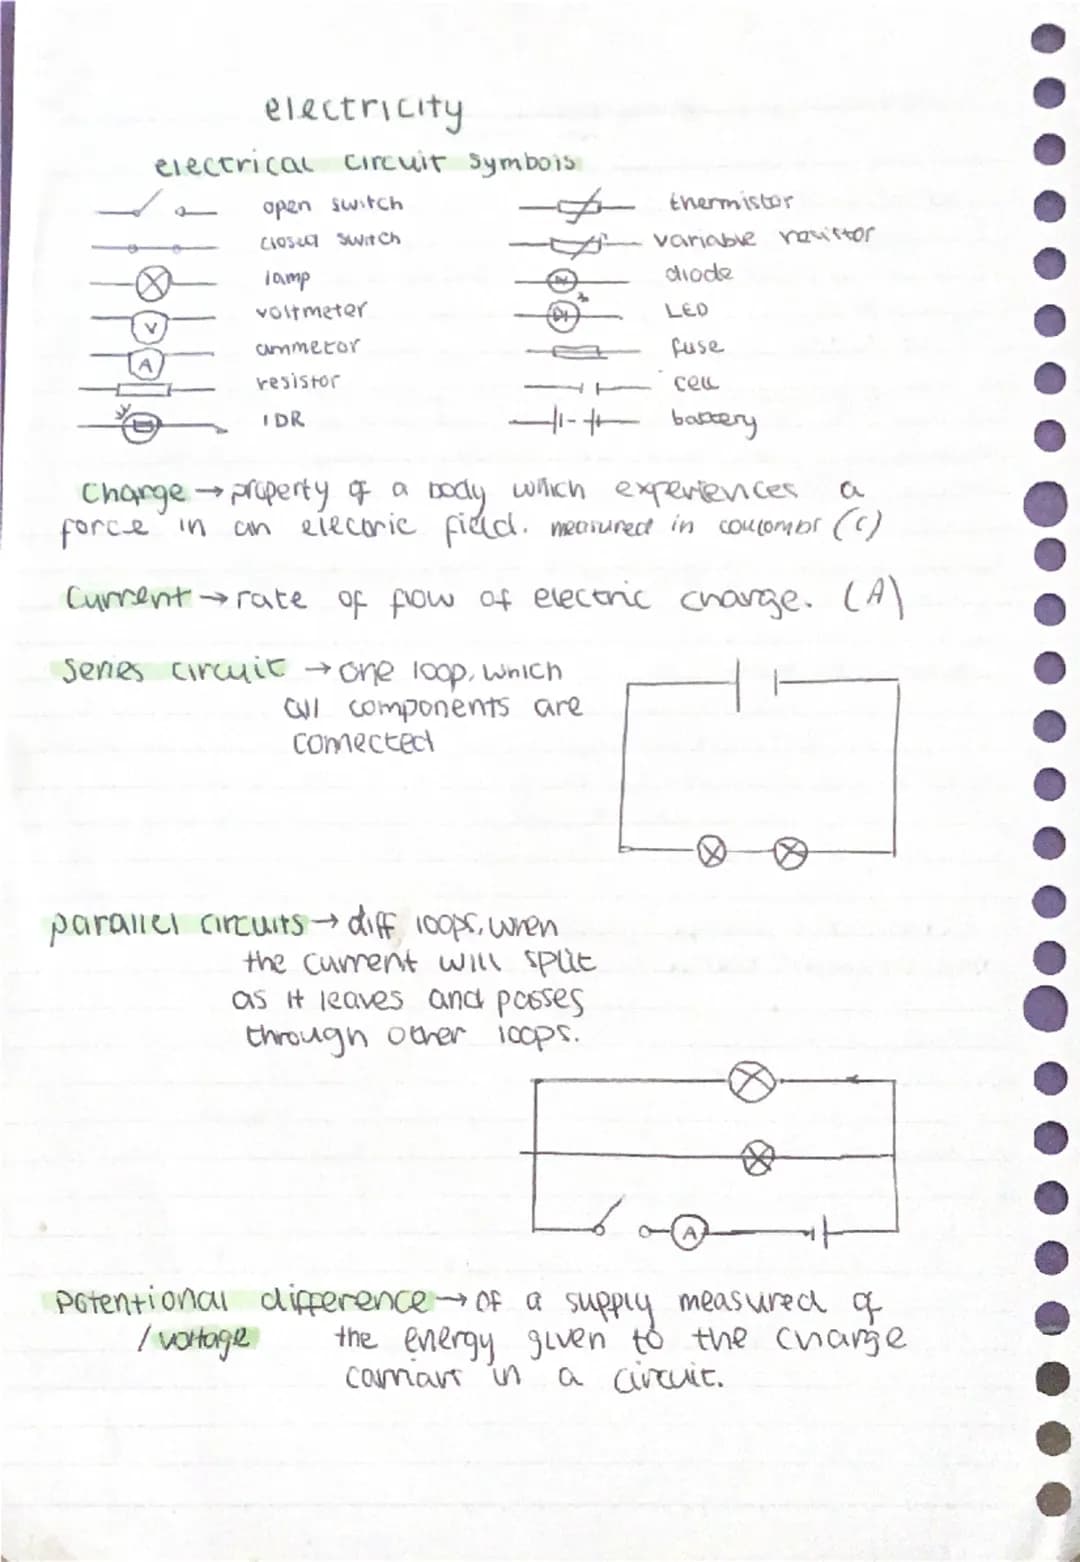 electricity
electrical circuit symbols
open switch
thermistor
closed switch
variable resistor
lamp
diode
V
voltmeter
LED
A
ammetor
fuse
resistor
cell
LDR
battery
Charge → property of a body which experiences a
force in an electric field. measured in coulombs (C)
Current → rate of flow of electric charge. (A)
Series circuit → one loop, which
all components are
connected
parallel circuits → diff loops, when
the current will split
as it leaves and passes
through other loops.
A
Potentional difference → of a supply measured of
/ voltage the energy given to the charge
carriars in a circuit.